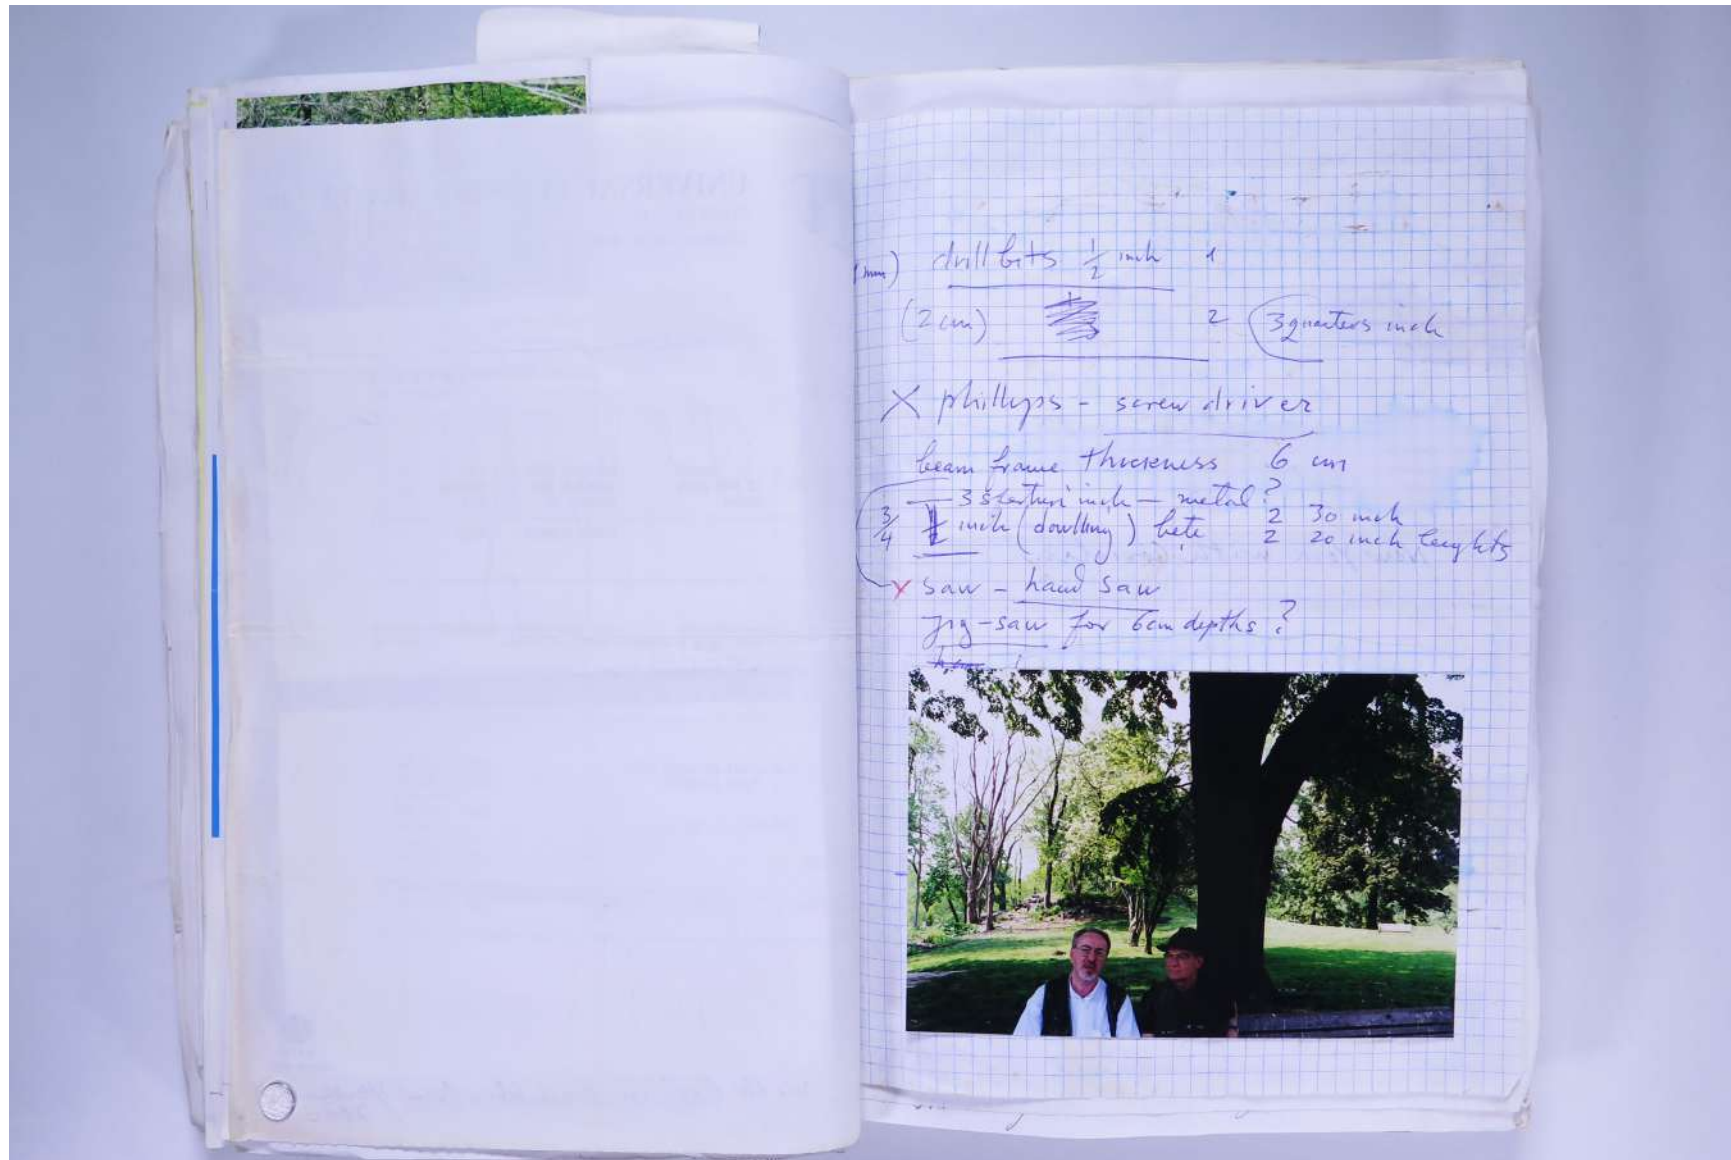 mm) drill bits 1/2 inch 1
(2 cm) 2 (3 quarters inch
X phillyps - screw driver
beam frame thickness 6 cm
3 inch - metal?
3/4 inch (dowlling) 2 30 inch
2 20 inch lenghts
X saw - hand saw
jig-saw for 6cm depths?